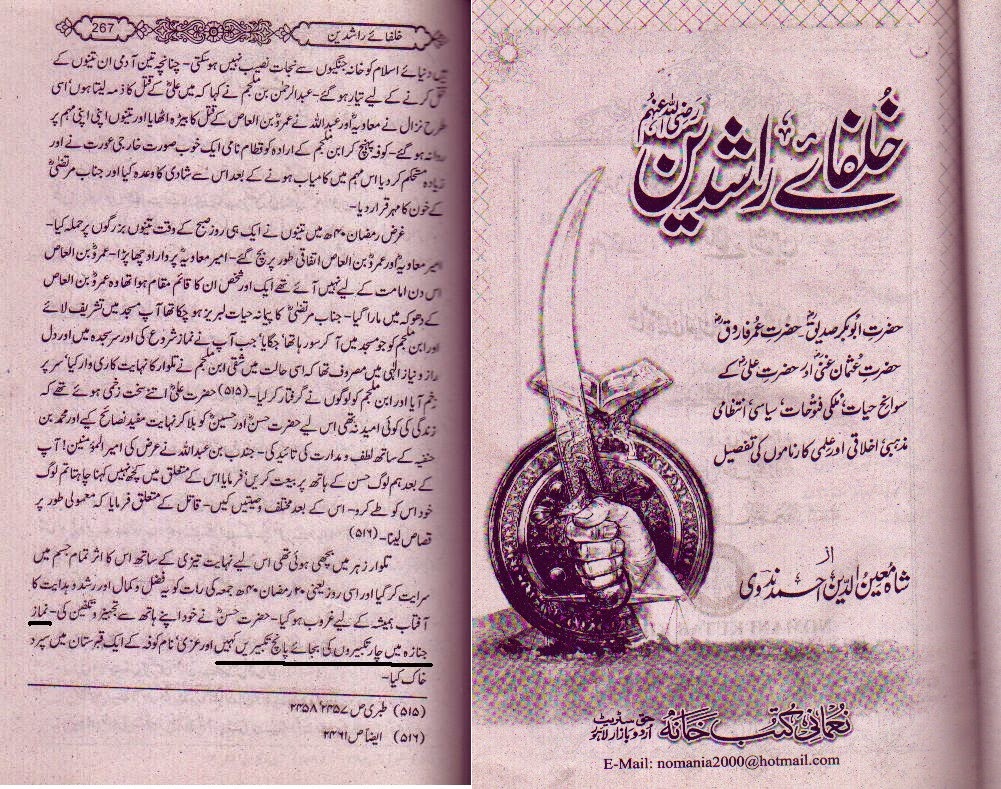 267
خلفائے راشدین
میں دنیائے اسلام کو خانہ جنگیوں سے نجات نصیب نہیں ہوسکتی۔ چنانچہ تین آدمی ان تینوں کے
قتل کرنے کے لیے تیار ہوگئے۔ عبدالرحمٰن بن ملجم نے کہا کہ میں علیؓ کے قتل کا ذمہ لیتا ہوں' اسی
طرح نزال نے معاویہؓ اور عبداللہ نے عمروؓ بن العاص کے قتل کا بیڑہ اٹھایا اور تینوں اپنی اپنی مہم پر
روانہ ہوگئے۔ کوفہ پہنچ کر ابن ملجم کے ارادہ کو قطام نامی ایک خوب صورت خارجی عورت نے اور
زیادہ مستحکم کر دیا اس مہم میں کامیاب ہونے کے بعد اس سے شادی کا وعدہ کیا اور جناب مرتضیٰؓ
کے خون کا مہر قرار دیا۔
غرض رمضان ۴۰ھ میں تینوں نے ایک ہی روز صبح کے وقت تینوں بزرگوں پر حملہ کیا۔
امیر معاویہؓ اور عمروؓ بن العاص اتفاقی طور پر بچ گئے۔ امیر معاویہؓ پر وار اوچھا پڑا۔ عمروؓ بن العاص
اس دن امامت کے لیے نہیں آئے تھے ایک اور شخص ان کا قائم مقام ہوا تھا وہ عمروؓ بن العاص
کے دھوکہ میں مارا گیا۔ جناب مرتضیٰؓ کا پیانہ حیات لبریز ہوچکا تھا آپ مسجد میں تشریف لائے
اور ابن ملجم کو جو مسجد میں آ کر سو رہا تھا' جگایا' جب آپ نے نماز شروع کی اور سر سجدہ میں اور دل
راز و نیاز الٰہی میں مصروف تھا کہ اسی حالت میں شقی ابن ملجم نے تلوار کا نہایت کاری وار کیا' سر پر
زخم آیا اور ابن ملجم کو لوگوں نے گرفتار کر لیا۔ (۵۱۵) حضرت علیؓ اتنے سخت زخمی ہوئے تھے کہ
زندگی کی کوئی امید نہ تھی اس لیے حضرت حسنؓ اور حسینؓ کو بلا کر نہایت مفید نصائح کیے اور محمد بن
حنفیہ کے ساتھ لطف و مدارت کی تائید کی۔ جندب بن عبداللہ نے عرض کی امیر المؤمنین! آپ
کے بعد ہم لوگ حسن کے ہاتھ پر بیعت کریں' فرمایا اس کے متعلق میں کچھ نہیں کہنا چاہتا تم لوگ
خود اس کو طے کرو۔ اس کے بعد مختلف وصیتیں کیں۔ قاتل کے متعلق فرمایا کہ معمولی طور پر
قصاص لینا۔ (۵۱۶)
تلوار زہر میں بجھی ہوئی تھی اس لیے نہایت تیزی کے ساتھ اس کا اثر تمام جسم میں
سرایت کر گیا اور اسی روز یعنی ۲۰ رمضان ۴۰ھ جمعہ کی رات کو یہ فضل و کمال اور رشد و ہدایت کا
آفتاب ہمیشہ کے لیے غروب ہوگیا۔ حضرت حسنؓ نے خود اپنے ہاتھ سے تجہیز و تکفین کی۔ نماز
جنازہ میں چار تکبیروں کی بجائے پانچ تکبیریں کہیں اور عزی' نام کوفہ کے ایک قبرستان میں سپرد
خاک کیا۔
(۵۱۵) طبری ص ۲۴۵۷' ۲۴۵۸
(۵۱۶) ایضاً ص ۲۴۶۱
خلفائے راشدین رضی اللہ عنہم
حضرت ابوبکر صدیقؓ۔ حضرت عمر فاروقؓ
حضرت عثمان غنیؓ اور حضرت علیؓ کے
سوانح حیات' ملکی فتوحات' سیاسی' انتظامی
مذہبی' اخلاقی اور علمی کارناموں کی تفصیل
از
شاہ معین الدین احمد ندوی
نعمانی کتب خانہ
حق سٹریٹ
اردو بازار لاہور
E-Mail: nomania2000@hotmail.com